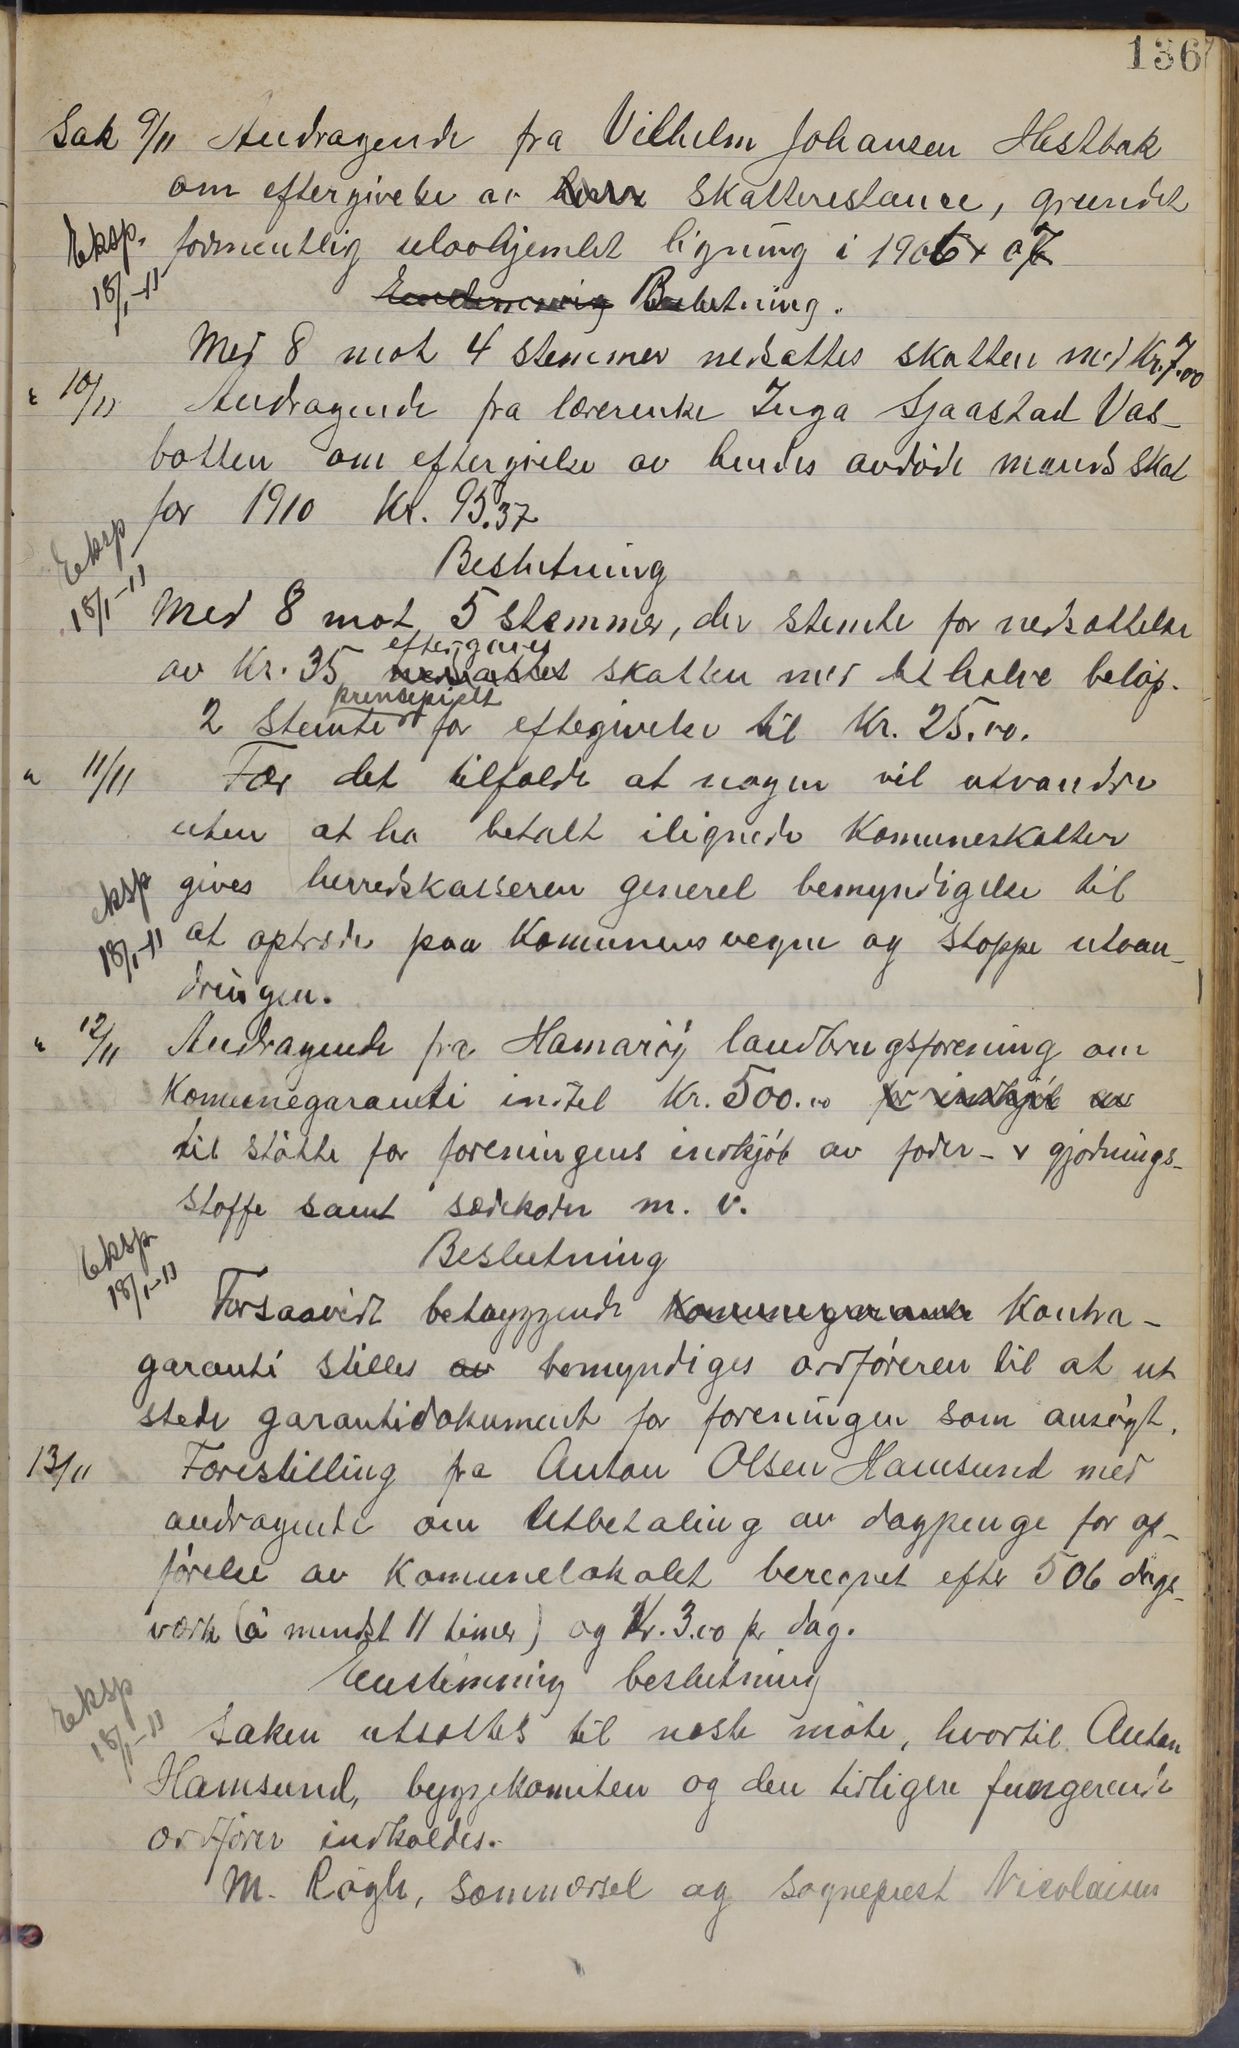 136
Sak 9/11 Andragende fra Vilhelm Johansen Hestbak
om eftergivelse av skatterestance, grundet
Eksp. 18/1-11
formentlig ulovhjemlet ligning i 1906 + 07
Enstemmig Beslutning.
Med 8 mot 4 stemmer nedsattes skatten med Kr. 7.00
" 10/11 Andragende fra lærerenke Inga Sjaastad Vas-
botten om eftergivelse av hendes avdöde mands skat
for 1910 Kr. 95.37
Eksp 18/1-11
Beslutning
Med 8 mot 5 stemmer, der stemte for nedsættelse
eftergaves
av Kr. 35 nedsattes skatten med det halve belöp.
prinsepielt
2 stemte for eftegivelse til Kr. 25.00.
" 11/11 For det tilfælde at nogen vil utvandre
uten at ha betalt ilignede Komuneskatter
Eksp 18/1-11
gives herredskasseren generel bemyndigelse til
at optræde paa Komunens vegne og stoppe utvan-
dringen.
" 12/11 Andragende fra Hamaröy landbrugsforening om
Komunegaranti indtil Kr. 500.00 for indkjöb av
til stötte for foreningens indkjöb av foder- & gjödnings-
stoffe samt sædekorn m. v.
Eksp. 18/1-11
Beslutning
Forsaavidt betryggende Komunegaranti Kontra-
garanti stilles av bemyndiges ordföreren til at ut
stede garantidokument for foreningen som ansögt.
13/11 Forestilling fra Anton Olsen Hamsund med
andragende om Utbetaling av dagpenge for op-
förelse av Komunelokalet beregnet efter 506 dags-
værk (á mindst 11 timer) og Kr. 3.00 pr dag.
Eksp 18/1-11
Enstemmig beslutning
Saken utsættes til næste möte, hvortil Anton
Hamsund, byggekomiteen og den tidligere fungerende
ordförer indkaldes.
M. Rögh, Sommersel og Sogneprest Nicolaisen